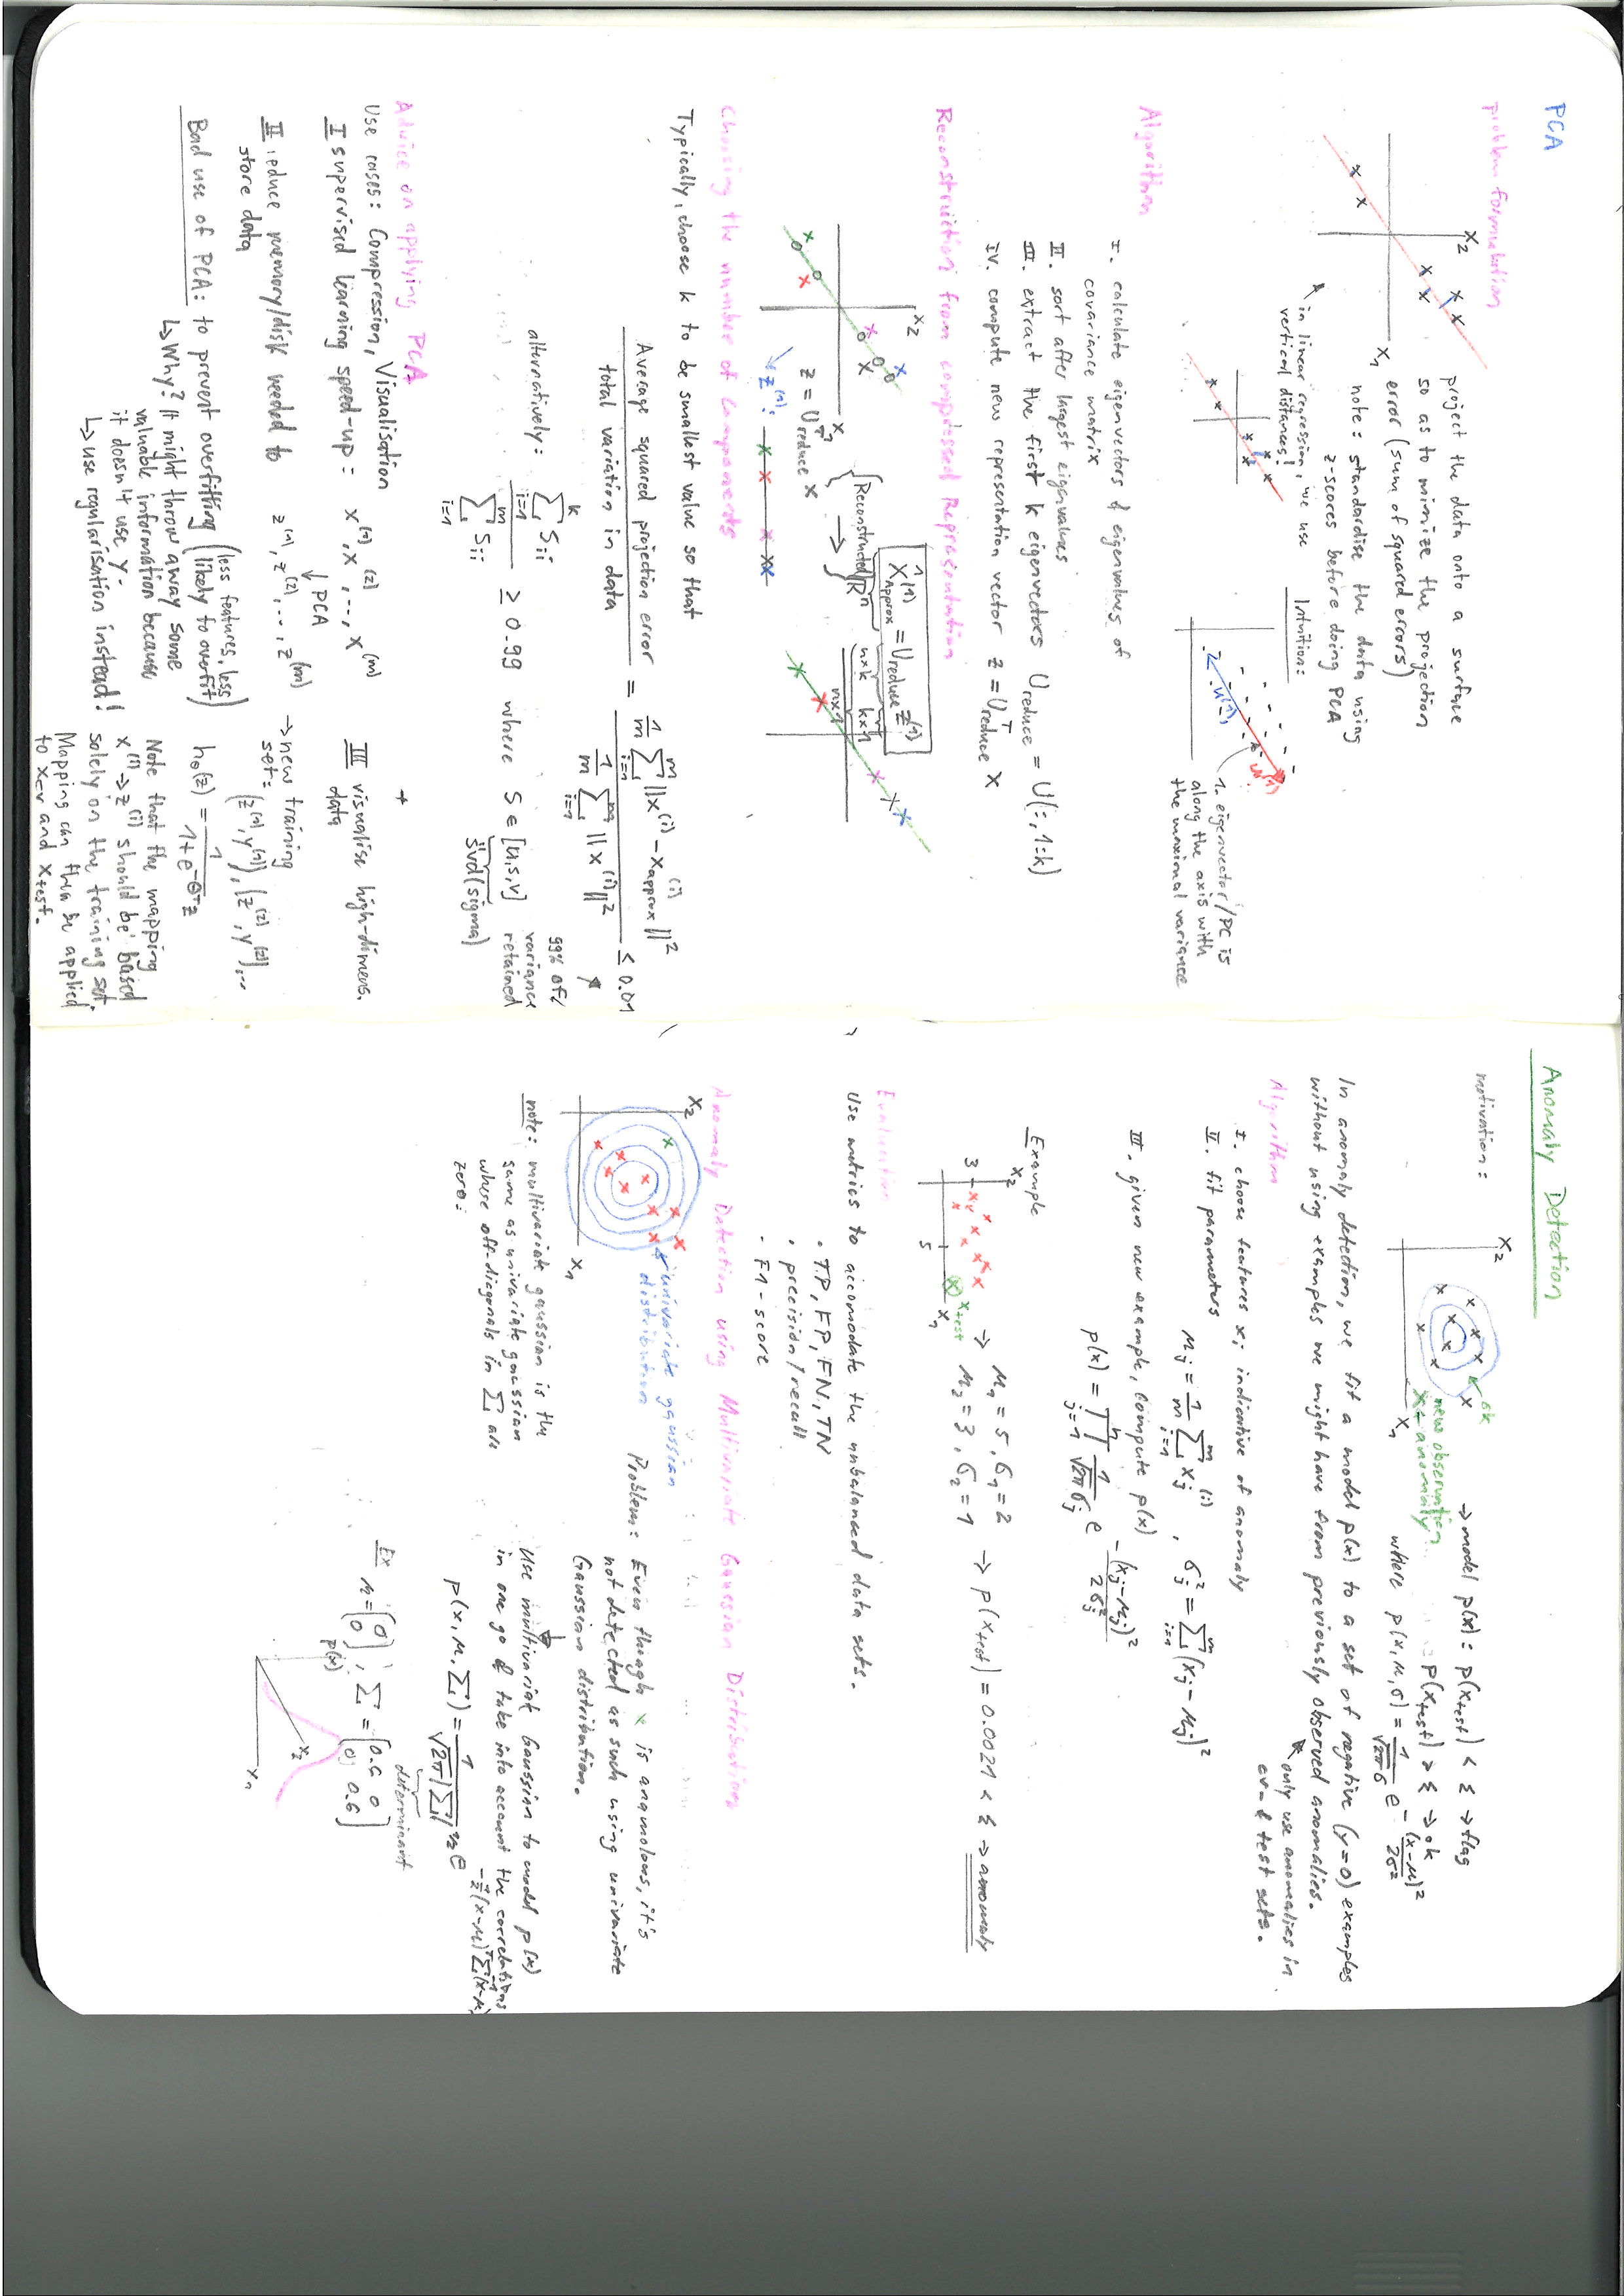 PCA
problem formulation
x2
x1
project the data onto a surface
so as to minimize the projection
error (sum of squared errors)
note: standardise the data using
z-scores before doing PCA
in linear regression, we use
vertical distances!
Intuition:
u(1)
u(1)
1. eigenvector/PC is
along the axis with
the maximal variance
Algorithm
I. calculate eigenvectors & eigenvalues of
covariance matrix
II. sort after largest eigenvalues
III. extract the first k eigenvectors U_reduce = U(:,1:k)
IV. compute new representation vector z = U^T_reduce x
Reconstruction from compressed Representation
x2
x1
X̂^(1)_Approx = U_reduce z^(1)
{Reconstructed →}
ℝ^n
n×k k×1
n×1
z = U^T_reduce x
z^(1):
Choosing the number of components
Typically, choose k to be smallest value so that
Average squared projection error / total variation in data = 1/m Σ_{i=1}^m ||x^(i) - x^(i)_approx||² / 1/m Σ_{i=1}^m ||x^(i)||² ≤ 0.01
99% of
variance
retained
alternatively: Σ_{i=1}^k S_ii / Σ_{i=1}^m S_ii ≥ 0.99 where S ∈ [u,s,v]
svd(sigma)
Advice on applying PCA
Use cases: Compression, Visualisation
I supervised learning speed-up: x^(1), x^(2), ..., x^(m)
↓ PCA
z^(1), z^(2), ..., z^(m)
→ new training
set:
(z^(1), y^(1)), (z^(2), y^(2)), ..
h_θ(z) = 1/(1+e^{-θ^T z})
Note that the mapping
x^(i) → z^(i) should be based
solely on the training set.
Mapping can then be applied
to x_cv and x_test.
II reduce memory/disk needed to
store data
+
III visualise high-dimens.
data
Bad use of PCA: to prevent overfitting (less features, less
likely to overfit)
↳ Why? It might throw away some
valuable information because
it doesn't use y.
↳ use regularisation instead!
Anomaly Detection
motivation:
x2
x1
ok
new observation
x ← anomaly
→ model p(x): p(x_test) < ε → flag
p(x_test) > ε → ok
where p(x,μ,σ) = 1/(√2π σ) e^{-(x-μ)²/2σ²}
In anomaly detection, we fit a model p(x) to a set of negative (y=0) examples
without using examples we might have from previously observed anomalies.
only use anomalies in
cv- & test sets.
Algorithm
I. choose features x_i indicative of anomaly
II. fit parameters
μ_j = 1/m Σ_{i=1}^m x_j^(i) , σ_j² = Σ_{i=1}^m (x_j - μ_j)²
III. given new example, compute p(x)
p(x) = Π_{j=1}^n 1/(√2π σ_j) e^{-(x_j-μ_j)²/2σ_j²}
Example
x2
3
5
x1
x_test
→ μ1 = 5, σ1 = 2
μ2 = 3, σ2 = 1
→ p(x_test) = 0.0021 < ε → anomaly
Evaluation
Use metrics to accomodate the unbalanced data sets.
• TP, FP, FN, TN
• precision/recall
- F1-score
Anomaly Detection using Multivariate Gaussian Distribution
x2
x1
univariate gaussian
distribution
Problem: Even though x is anamolous, it's
not detected as such using univariate
Gaussian distribution.
↓
Use multivariate Gaussian to model p(x)
in one go & take into account the correlations
p(x,μ,Σ) = 1/(√2π |Σ|^{1/2}) e^{-1/2 (x-μ)^T Σ^{-1} (x-μ)}
determinant
note: multivariate gaussian is the
same as univariate gaussian
where off-diagonals in Σ are
zero.
Ex μ = (0 0), Σ = [0.6 0
0 0.6]
p(x)
x2
x1